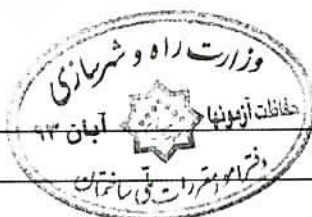 وزارت راه و شهرسازی
حفاظت آزمونها
آبان ۹۳
دفتر امور مقررات ملی ساختمان